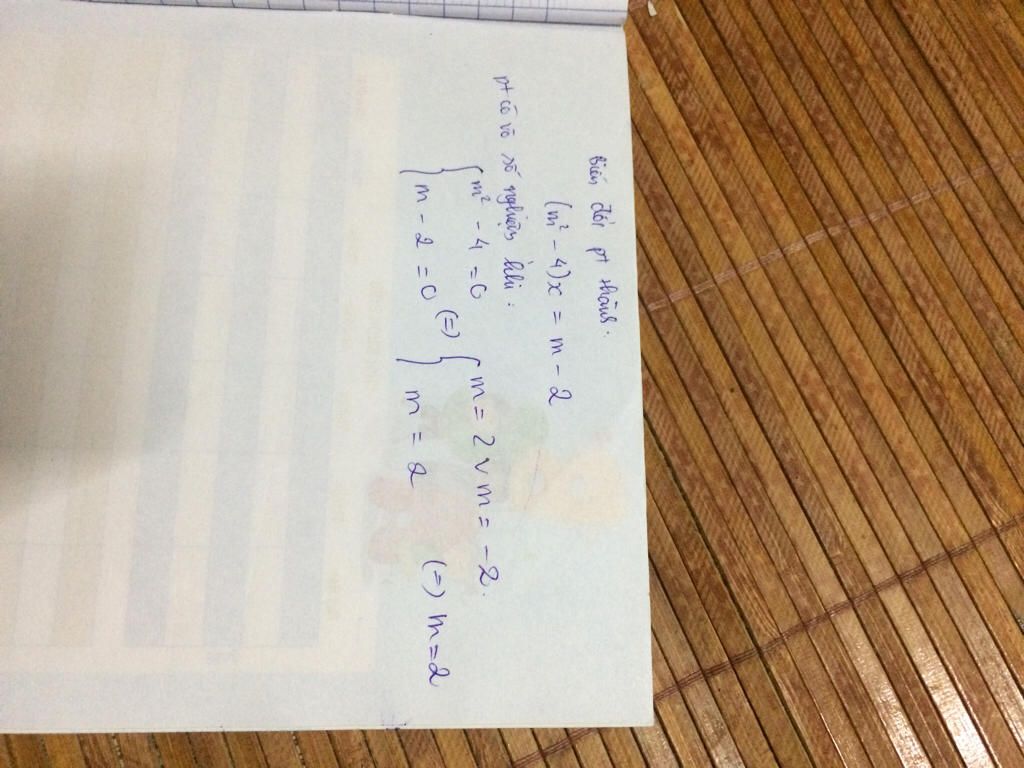 Biến đổi pt thành.
(m² - 4)x = m - 2
pt có vô số nghiệm khi :
{ m² - 4 = 0 (=) { m = 2 v m = -2.
{ m - 2 = 0 { m = 2 (=) m = 2